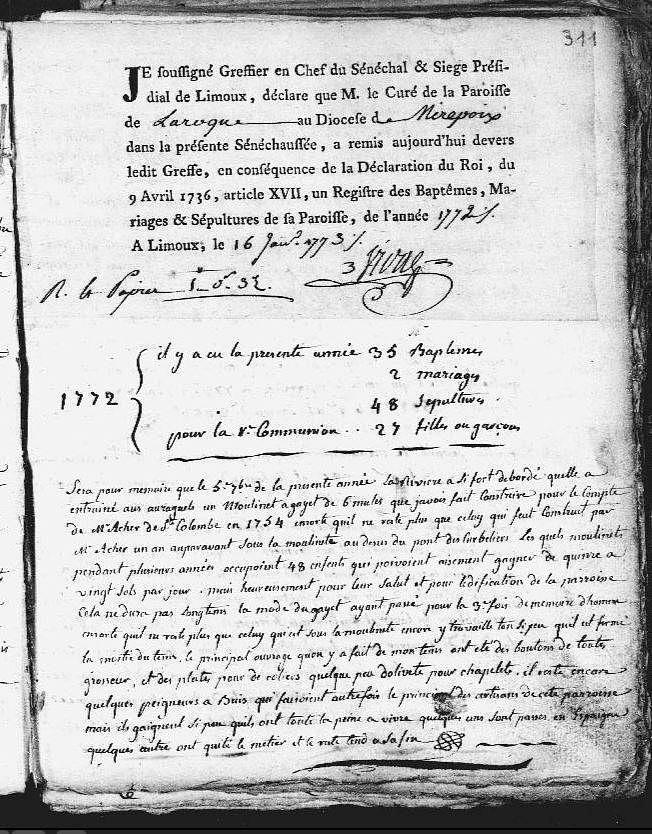 311
JE soussigné Greffier en Chef du Sénéchal & Siege Prési-
dial de Limoux, déclare que M. le Curé de la Paroisse
de Laroque au Diocese de Mirepoix
dans la présente Sénéchaussée, a remis aujourd'hui devers
ledit Greffe, en conséquence de la Déclaration du Roi, du
9 Avril 1736, article XVII, un Registre des Baptêmes, Ma-
riages & Sépultures de sa Paroisse, de l'année 1772
A Limoux, le 16 Janv. 1773
R. le Papier
il y a eu la presente année 35 Baptemes
2 mariages
1772
48 sepultures
pour la 1re Communion .. 27 filles ou garçons
Sera pour memoire que le 5e 7bre de la presente année la Riviere a si fort debordé quelle a
entrainé aus auraguels un Moulinet a gayet de 6 mules que javois fait Construire pour le Compte
de Mr Acher de Ste Colombe en 1754 ensorte quil ne rate plus que celuy qui feut Construit par
Mr Acher un an auparavant sous la mouline au desus du pont des Les quels moulinets
pendant plusieurs années occupoint 48 enfents que poivoient aisement gagner de quinze a
vingt sols par jour. mais heureusement pour leur salut et pour ledification de la parroisse
Cela ne dura pas longtems la mode du gayet ayant passé pour la 3e fois de memoire d'homme
ensorte quil ne rate plus que celuy qui est sous la mouline encore y travaille ton si peu quil est fermé
la moitié du tems. le principal ouvrage quon y a fait de mon tems ont eté des boutons de toutes
grosseur, et des plates pour de coliers quelque peu dolivete pour chapelets. il reste encore
quelques peigneurs a Buis qui faisoient autrefois le principal des artisans de cete parroisse
mais ils gaignent si peu quils ont toute la peine a vivre quelques uns sont passes en Espaigne
quelques autre ont quité le metier et le rete tend a sa fin